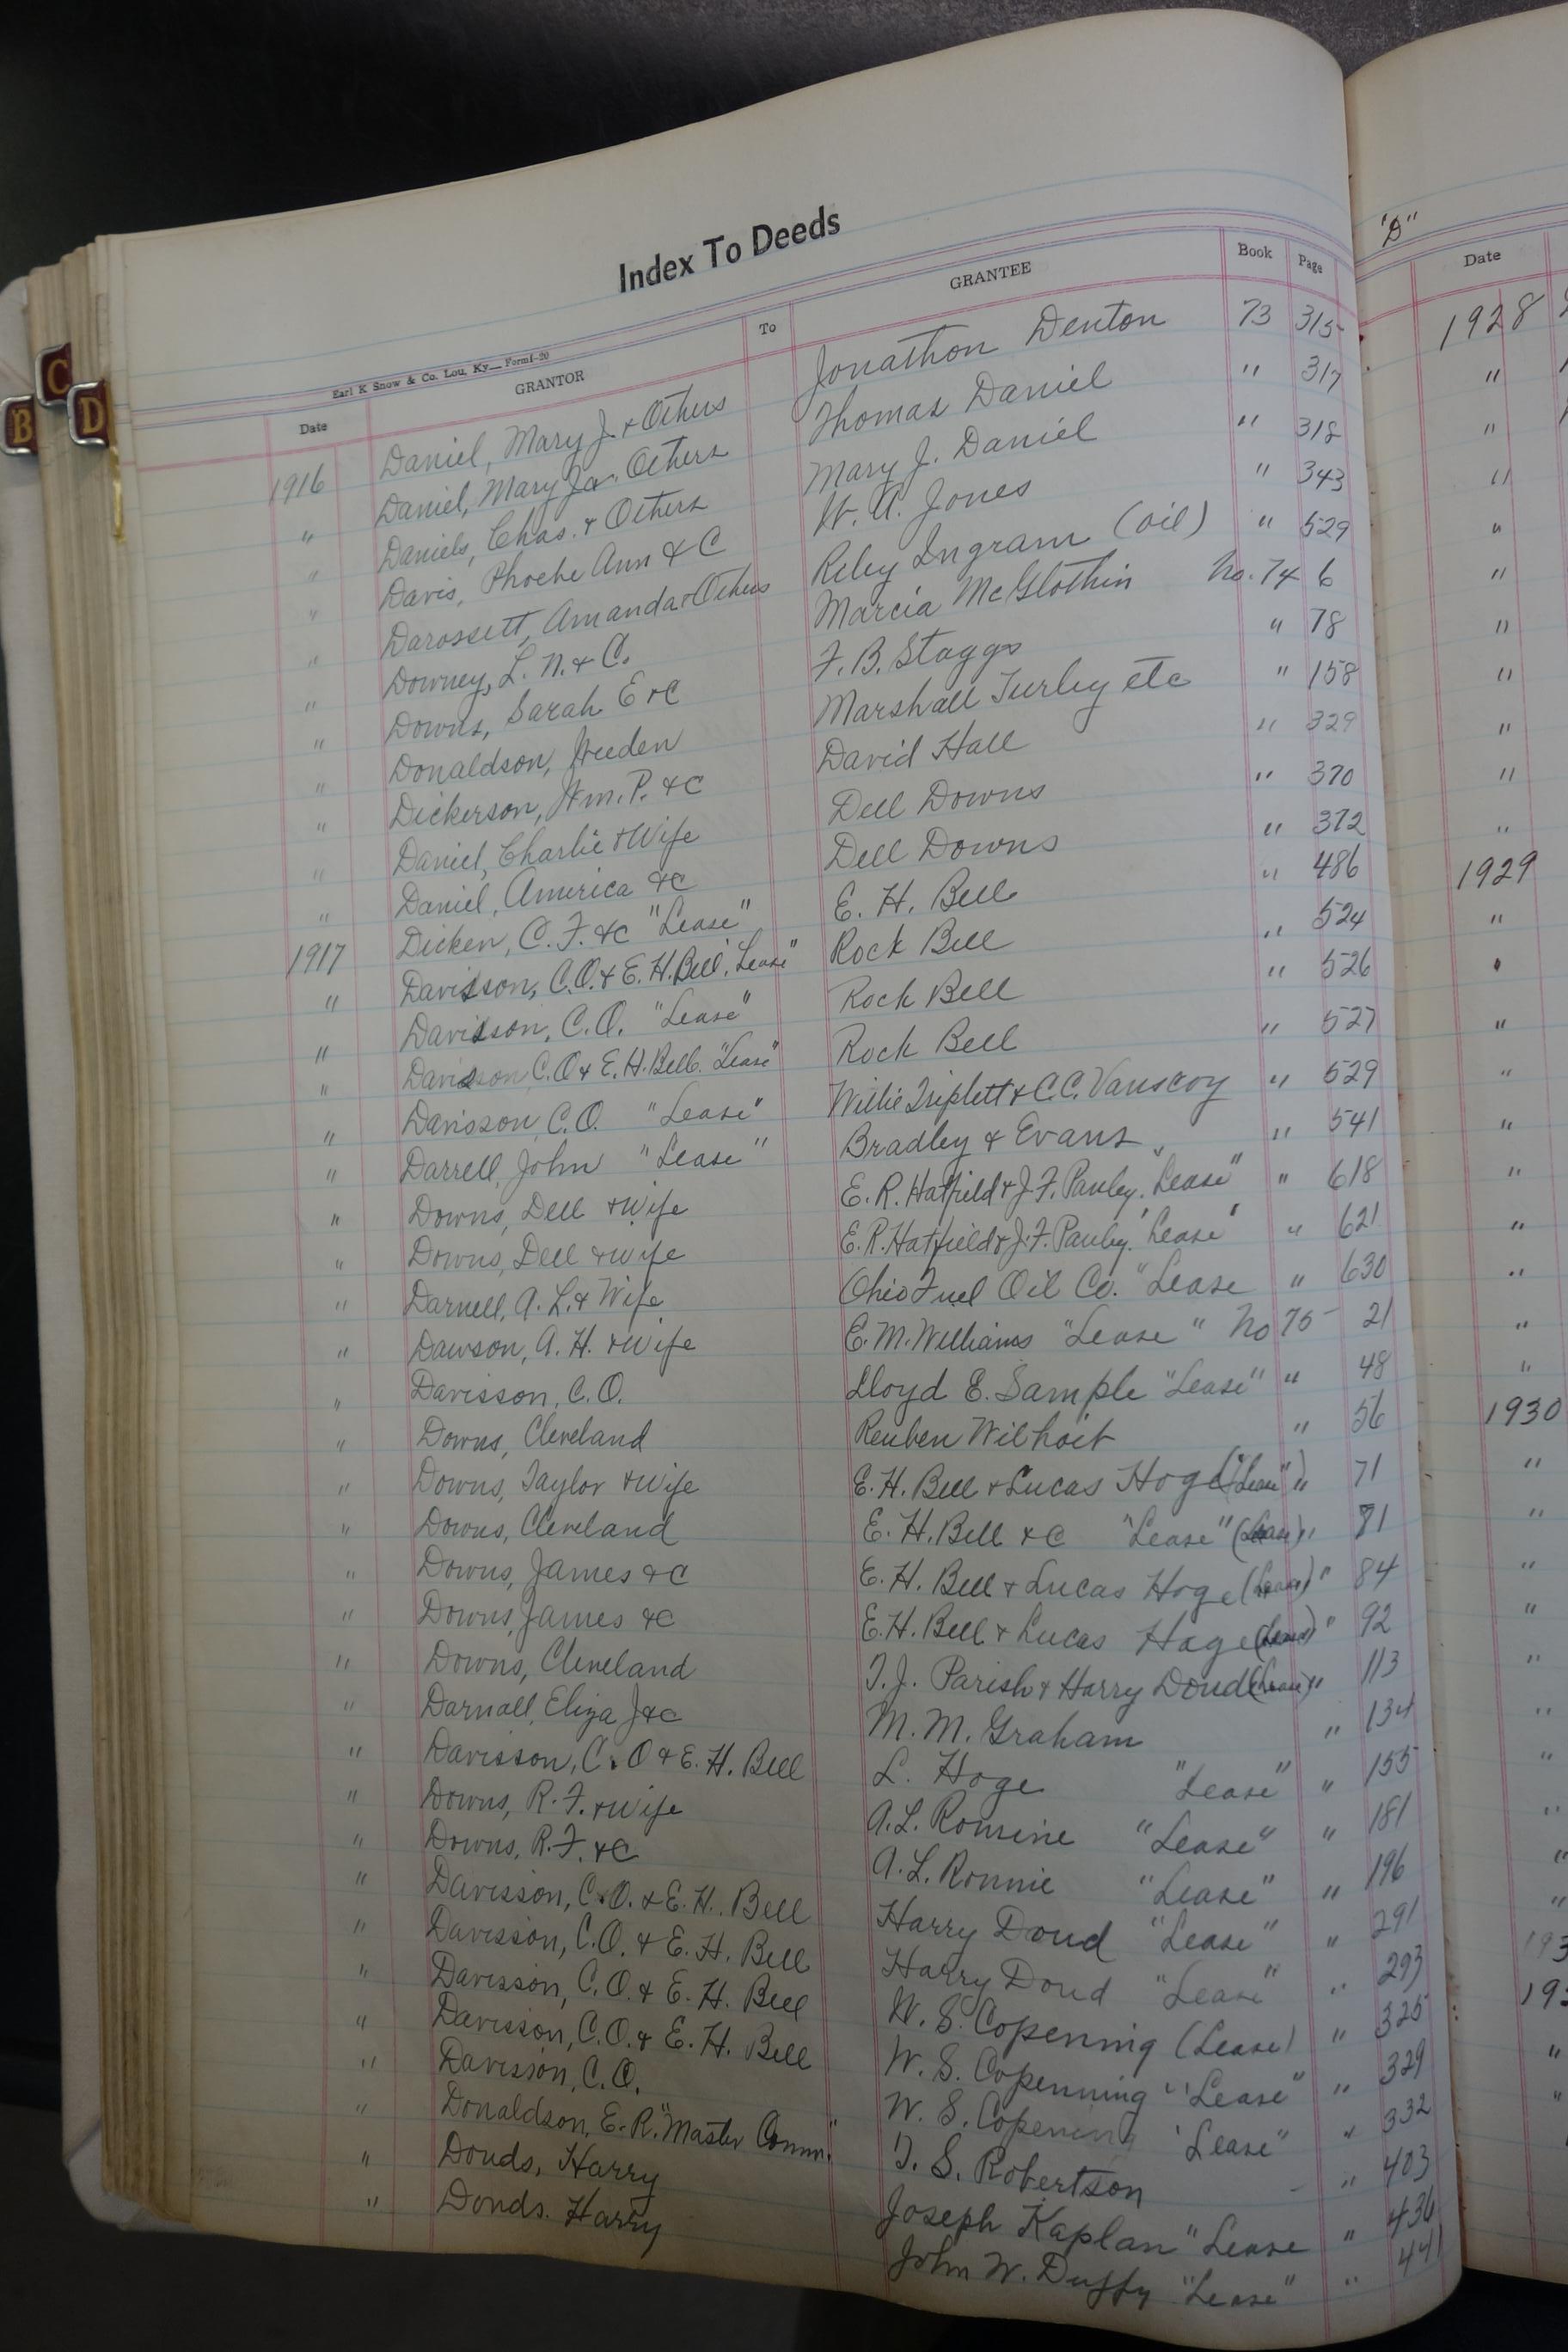 Index To Deeds
Earl K Snow & Co. Lou, Ky— Form1-20
Date GRANTOR To GRANTEE Book Page
1916 Daniel, Mary J. & Others Jonathon Denton 73 315
" Daniel, Mary Ja. Others Thomas Daniel " 317
" Daniels, Chas. & Others Mary J. Daniel " 318
" Davis, Phoebe Ann & C W. A. Jones " 343
" Darossett, Amanda & Others Riley Ingram (oil) " 529
" Downey, L. N. & C. Marcia McGlothin No. 74 6
" Downs, Sarah E & C F. B. Staggs " 78
" Donaldson, Weeden Marshall Turley etc " 158
" Dickerson, Wm. P. & C David Hall " 329
" Daniel, Charlie & Wife Dell Downs " 370
" Daniel, America & C Dell Downs " 372
1917 Dicken, C. F. & C "Lease" E. H. Bell " 486
" Davisson, C. O. & E. H. Bell, "Lease" Rock Bell " 524
" Davisson, C. O. "Lease" Rock Bell " 526
" Davisson C. O & E. H. Bell. "Lease" Rock Bell " 527
" Davisson, C. O. "Lease" Willie Triplett & C. C. Vanscoy " 529
" Darrell, John "Lease" Bradley & Evans " 541
" Downs, Dell & Wife E. R. Hatfield & J. F. Pauley. "Lease" " 618
" Downs, Dell & Wife E. R. Hatfield & J. F. Pauley. "Lease" " 621
" Darnell, A. L. & Wife Ohio Fuel Oil Co. "Lease " 630
" Dawson, A. H. & Wife E. M. Williams "Lease" No 75 21
" Davisson, C. O. Lloyd E. Sample "Lease" " 48
" Downs, Cleveland Reuben Wilhoit " 56
" Downs, Taylor & Wife E. H. Bell & Lucas Hoge ("Lease") " 71
" Downs, Cleveland E. H. Bell & C "Lease" (Lease) " 81
" Downs, James & C E. H. Bell & Lucas Hoge (Lease) " 84
" Downs, James & C E. H. Bell & Lucas Hoge (Lease) " 92
" Downs, Cleveland T. J. Parish & Harry Doud (Lease) " 113
" Darnall, Eliza J & C M. M. Graham " 134
" Davisson, C. O & E. H. Bell L. Hoge "Lease" " 155
" Downs, R. F. & Wife A. L. Romine "Lease" " 181
" Downs, R. F. & C A. L. Ronnie "Lease" " 196
" Davisson, C. O. & E. H. Bell Harry Doud "Lease" " 291
" Davisson, C. O. & E. H. Bell Harry Doud "Lease" " 293
" Davisson, C. O. & E. H. Bell W. S. Copenning (Lease) " 325
" Davisson, C. O. & E. H. Bell W. S. Copenning "Lease" " 329
" Davisson, C. O. W. S. Copening "Lease" " 332
" Donaldson, E. R. "Master Comm." T. S. Robertson " 403
" Douds, Harry Joseph Kaplan "Lease " 436
" Douds. Harry John W. Duffy "Lease" " 441
"D"
Date
1928
"
"
"
"
"
"
"
"
"
"
1929
"
"
"
"
"
"
"
"
"
"
1930
"
"
"
"
"
"
"
"
"